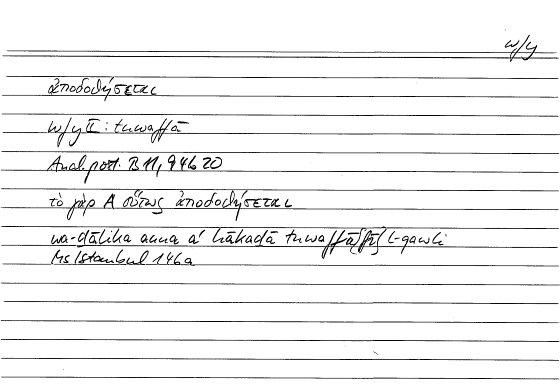 w/y
ἀποδοθήσεται
w/y II: tuwaffā
Anal. post. B 11, 94b 20
τὸ γὰρ A οὕτως ἀποδοθήσεται
wa-ḏālika anna a' hākaḏā tuwaffā [fī] l-qawli
Ms Istanbul 146a